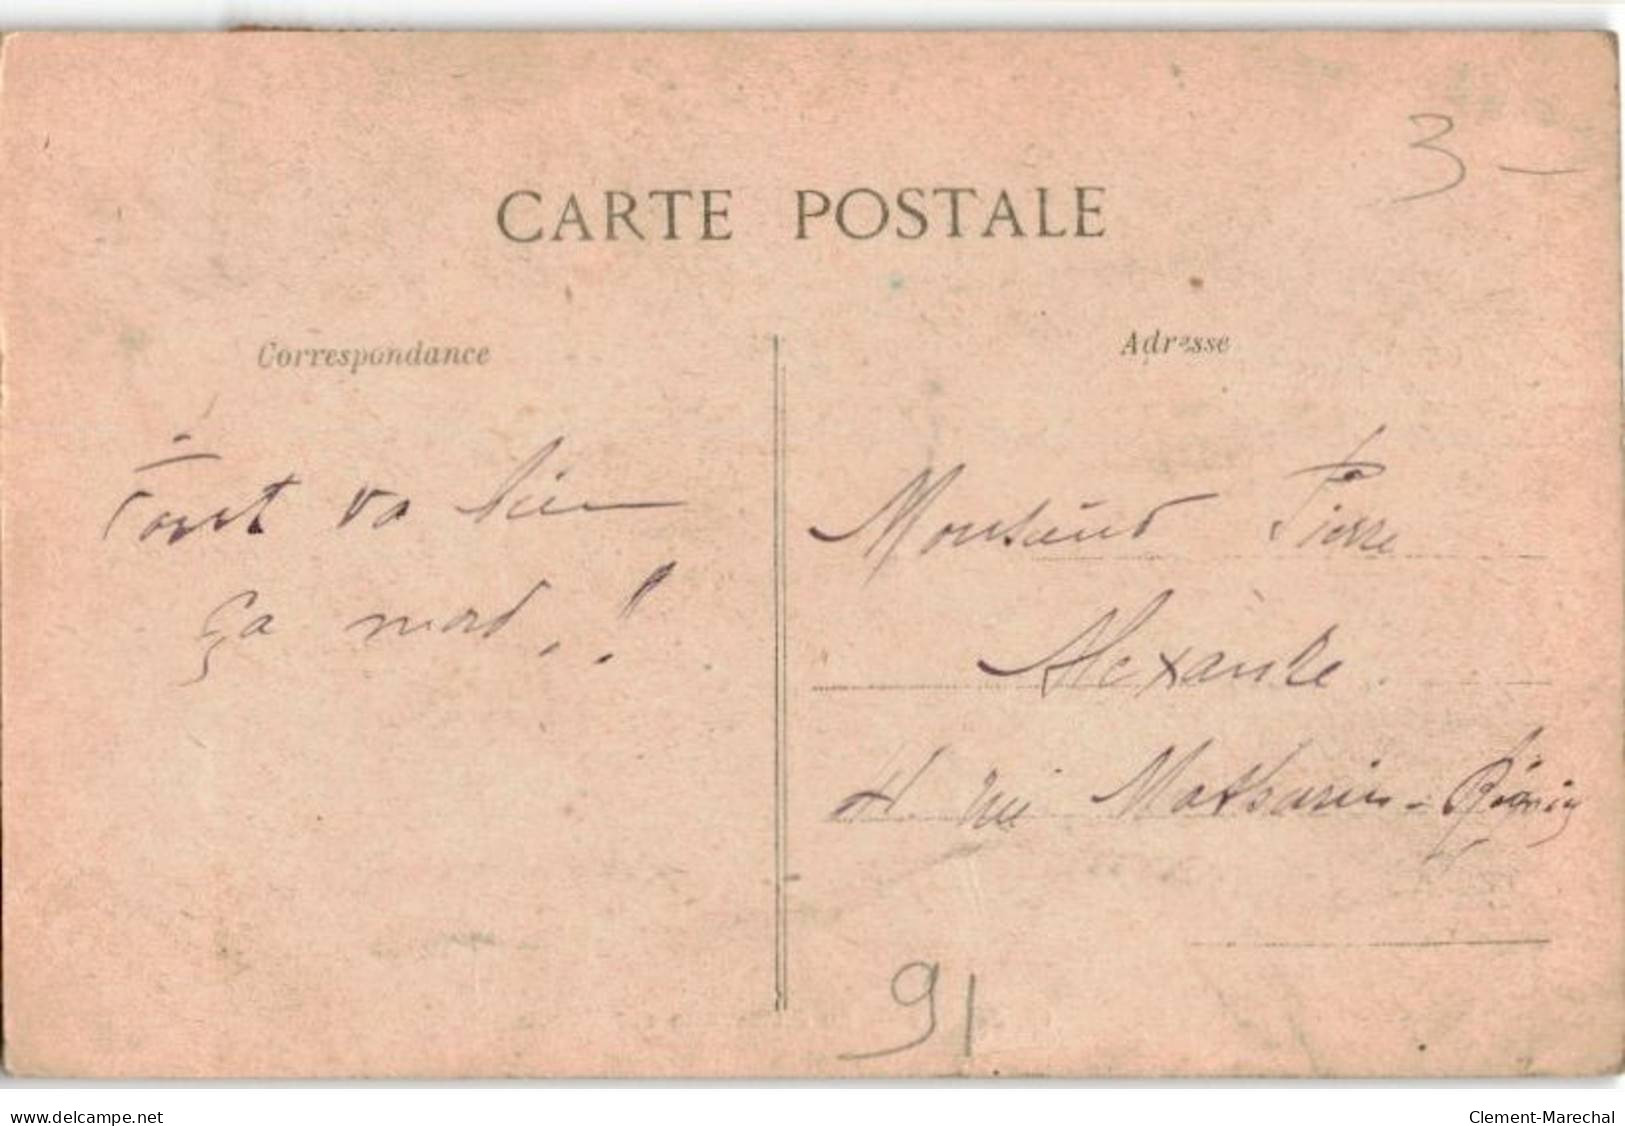 CARTE POSTALE
3 —
Correspondance
Adresse
Tout va bien
ça mord..!
Monsieur Pierre
Alexandre.
rue Mathurin-Régnier
91
www.delcampe.net
Clement-Marechal